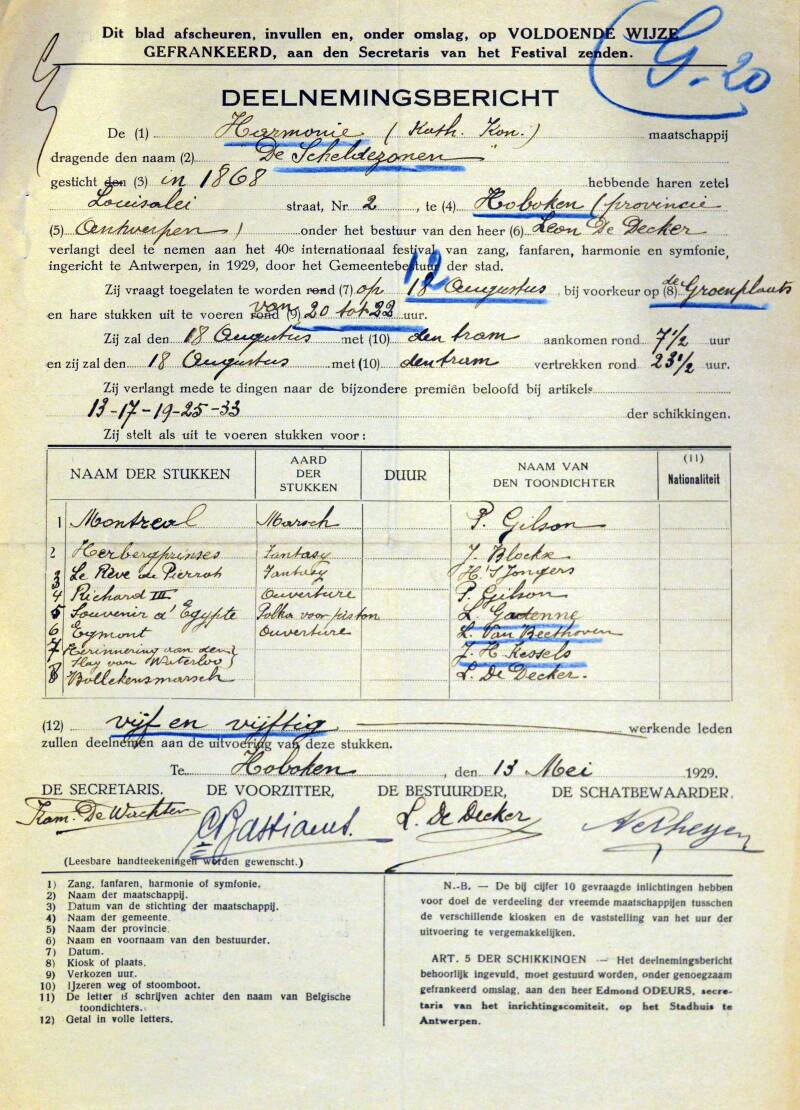 Dit blad afscheuren, invullen en, onder omslag, op VOLDOENDE WIJZE
GEFRANKEERD, aan den Secretaris van het Festival zenden.
G. 20
DEELNEMINGSBERICHT
De (1) Harmonie (Kath. Kon.) maatschappij
dragende den naam (2) "De Scheldezonen"
gesticht den (3) in 1868 hebbende haren zetel
Louisalei straat, Nr 2, te (4) Hoboken (provincie
(5) Antwerpen) onder het bestuur van den heer (6) Leon De Decker
verlangt deel te nemen aan het 40e internationaal festival van zang, fanfaren, harmonie en symfonie,
ingericht te Antwerpen, in 1929, door het Gemeentebestuur der stad.
12
Zij vraagt toegelaten te worden rond (7) op 18 Augustus, bij voorkeur op (8) de Groenplaats
en hare stukken uit te voeren rond (9) van 20 tot 22 uur.
Zij zal den 18 Augustus met (10) den tram aankomen rond 7 1/2 uur
en zij zal den 18 Augustus met (10) den tram vertrekken rond 23 1/2 uur.
Zij verlangt mede te dingen naar de bijzondere premiën beloofd bij artikels
13-17-19-25-33 der schikkingen.
Zij stelt als uit te voeren stukken voor:
NAAM DER STUKKEN AARD DER STUKKEN DUUR NAAM VAN DEN TOONDICHTER (11) Nationaliteit
1 Montreal Marsch P. Gilson
2 Herbergprinses Fantasy J. Blockx
3 Le Rêve du Pierrot Fantasy H. S. Jongers
4 Richard III Ouverture P. Gilson
5 Souvenir d'Egypte Polka voor piston L. Gadenne
6 Egmont Ouverture L. Van Beethoven
7 Herinnering aan den Slag van Waterloo J. H. Kessels
8 Bollekensmarsch L. De Decker.
(12) vijf en vijftig werkende leden
zullen deelnemen aan de uitvoering van deze stukken.
Te Hoboken, den 13 Mei 1929.
DE SECRETARIS. DE VOORZITTER, DE BESTUURDER, DE SCHATBEWAARDER.
De Wachter C Bastiaens. L. De Decker
(Leesbare handteekeningen worden gewenscht.)
1) Zang, fanfaren, harmonie of symfonie.
2) Naam der maatschappij.
3) Datum van de stichting der maatschappij.
4) Naam der gemeente.
5) Naam der provincie.
6) Naam en voornaam van den bestuurder.
7) Datum.
8) Kiosk of plaats.
9) Verkozen uur.
10) IJzeren weg of stoomboot.
11) De letter B schrijven achter den naam van Belgische
toondichters.
12) Getal in volle letters.
N.-B. — De bij cijfer 10 gevraagde inlichtingen hebben
voor doel de verdeeling der vreemde maatschappijen tusschen
de verschillende kiosken en de vaststelling van het uur der
uitvoering te vergemakkelijken.
ART. 5 DER SCHIKKINGEN — Het deelnemingsbericht
behoorlijk ingevuld, moet gestuurd worden, onder genoegzaam
gefrankeerd omslag, aan den heer Edmond ODEURS, secre-
taris van het inrichtingscomiteit, op het Stadhuis te
Antwerpen.